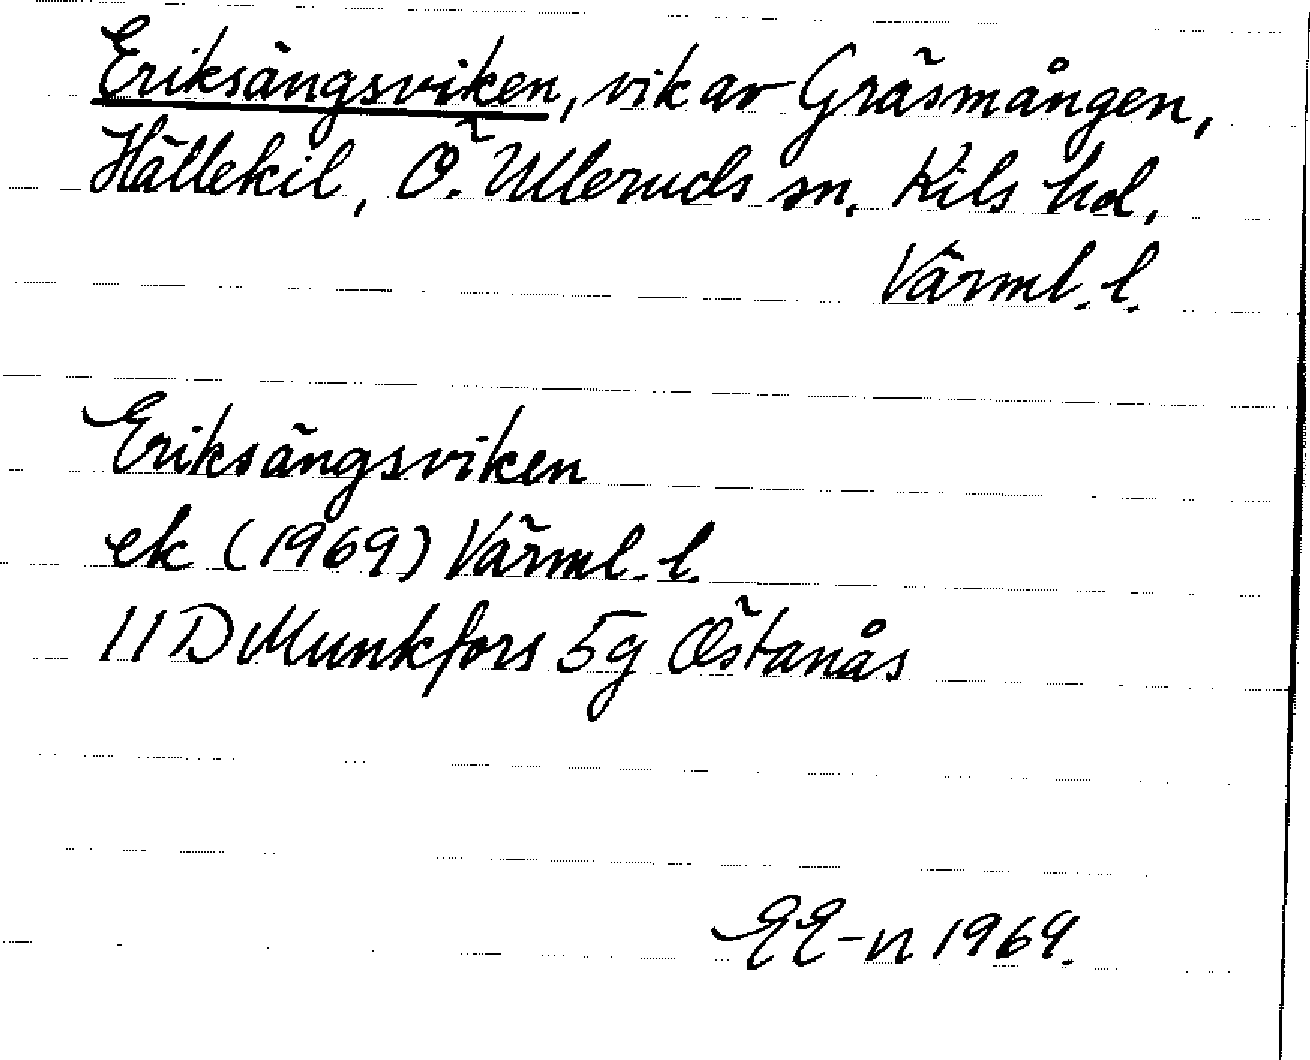 Eriksängsviken, vik av Gräsmången,
Hällekil, Ö. Ulleruds sn. Kils hd,
Värml. l.
Eriksängsviken
ek (1969) Värml. l.
11 D Munkfors 5g Östanås
EE-n 1969.